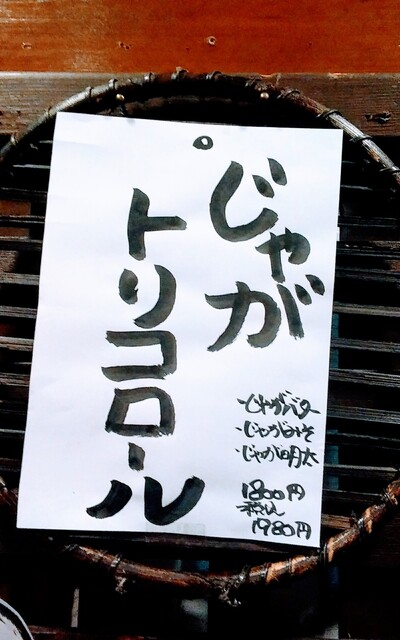 じゃが
トリコロール
・じゃがバター
・じゃがみそ
・じゃが明太
1800円
税込
1980円